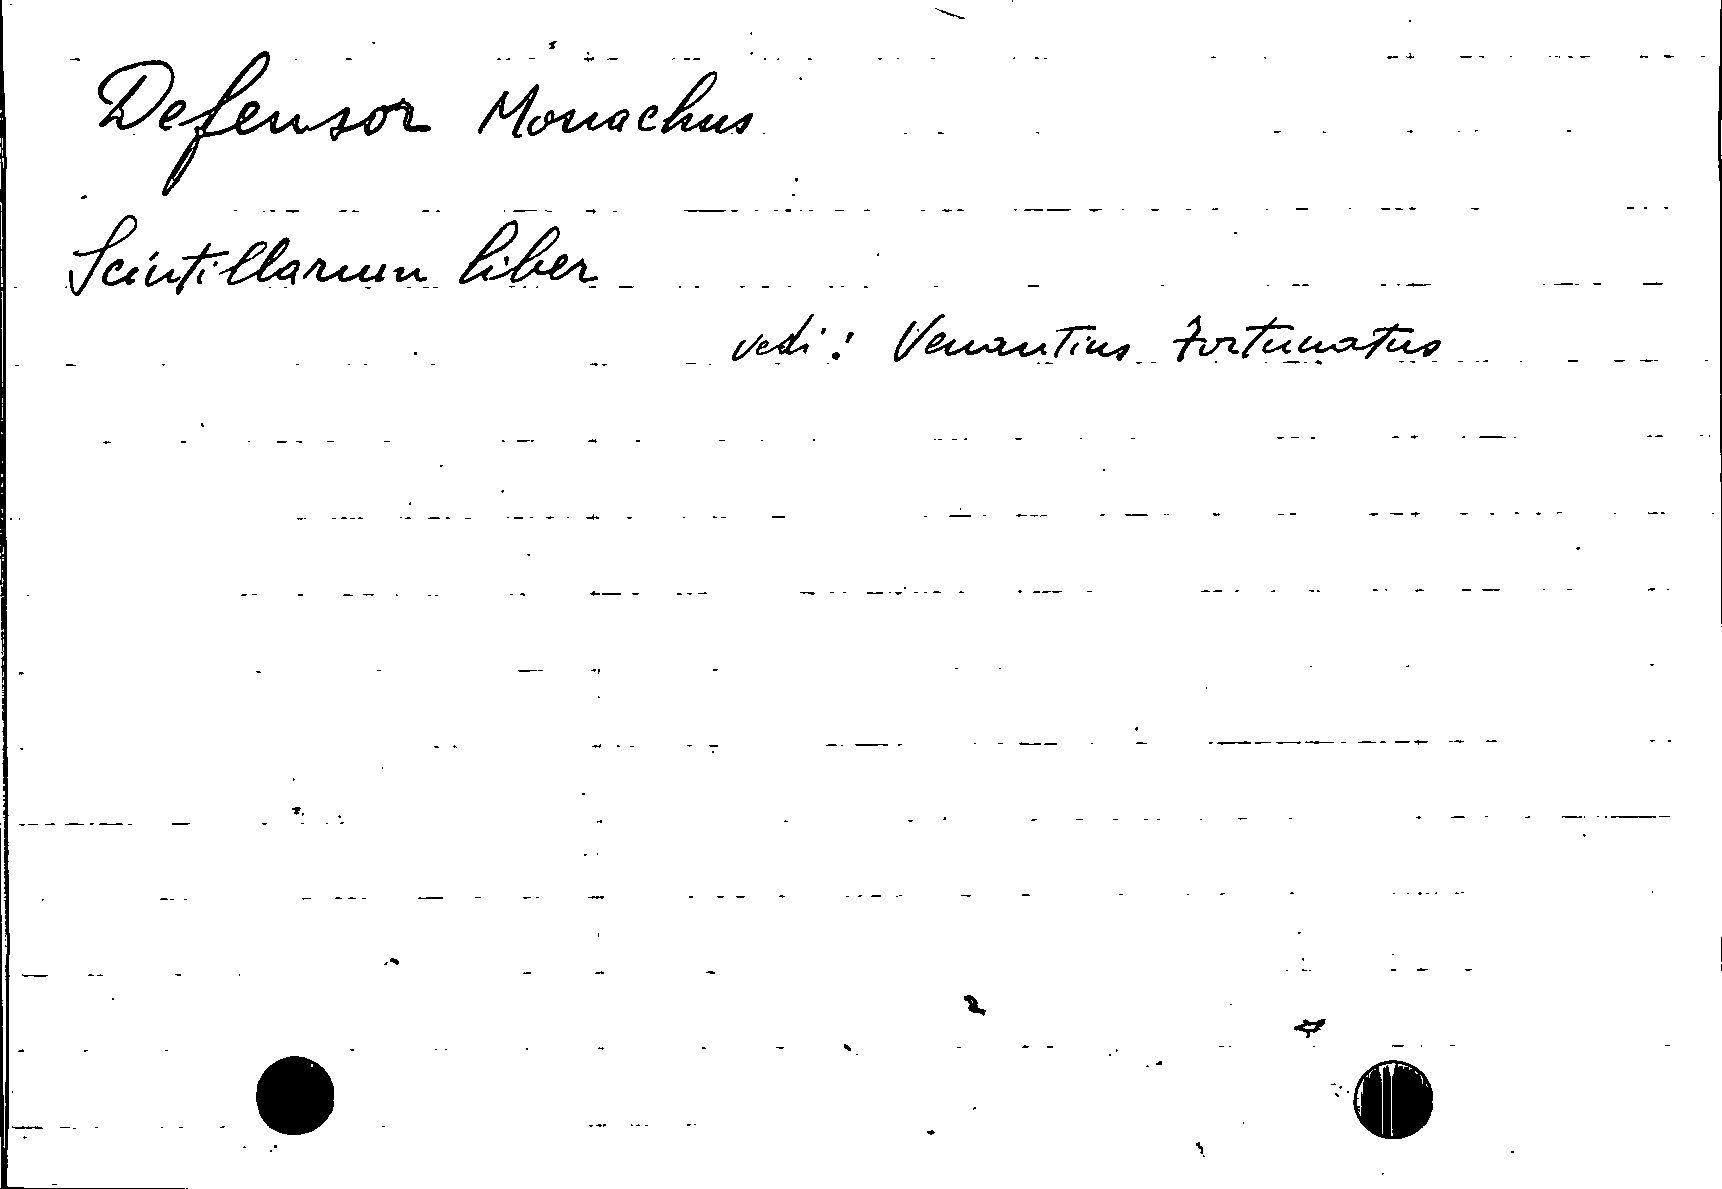 Defensor Monachus
Scintillarum liber
vedi: Venantius Fortunatus